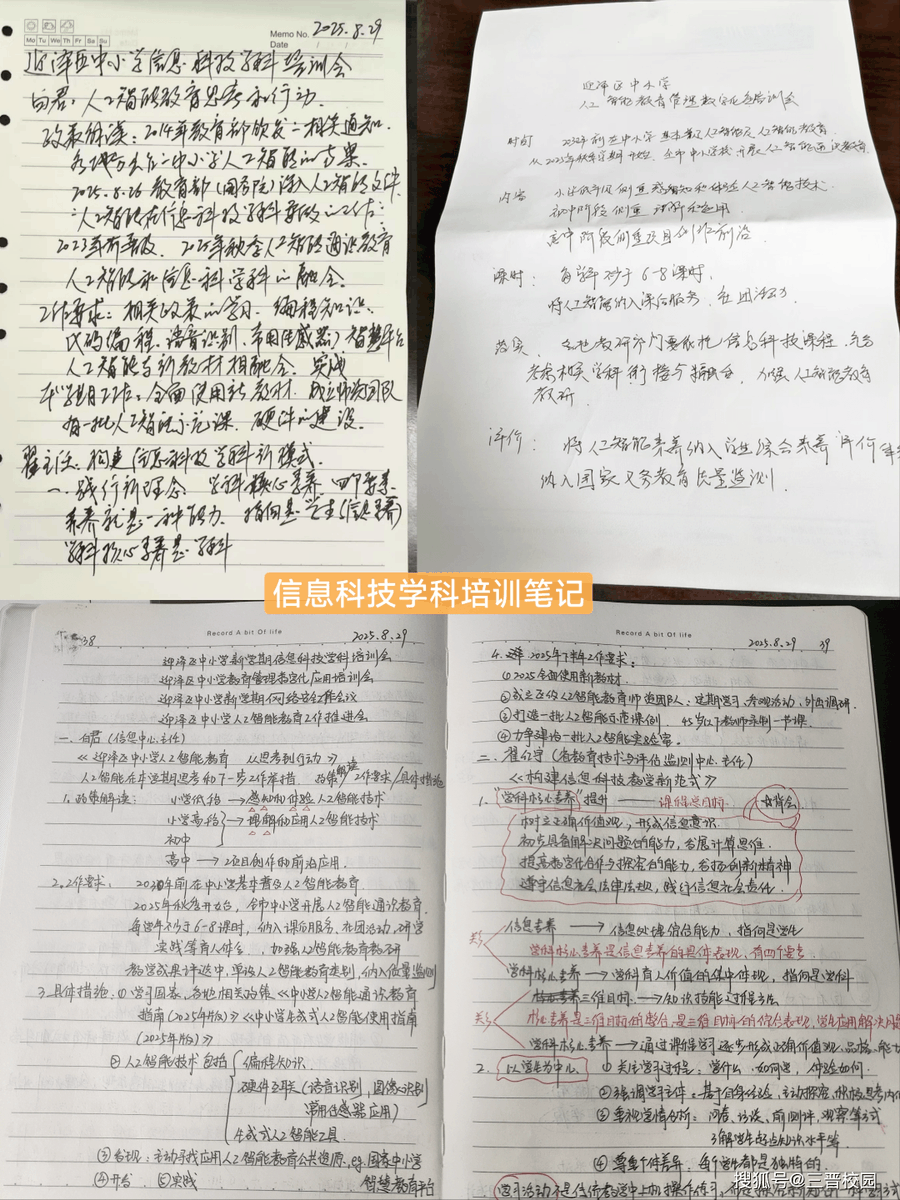 Memo No.
Mo Tu We Th Fr Sa Su
Date
2025.8.29
迎泽区中小学信息科技学科培训会
白君：人工智能教育思考和行动.
政策解读：2014年教育部颁发：相关通知.
各地方公布二中小学人工智能的方案.
2025.8.26 教育部(国务院)深入人工智能文件
人工智能在信息科技学科要做的工作：
2025年秋季人工智能通识教育
人工智能和信息科学科的融合.
工作要求：相关政策的学习. 编程知识.
代码编程. 语音识别. 常用传感器. 智慧平台
人工智能与新教材相融合. 实践
本学期工作：全面使用新教材. 成立师资团队
有一批人工智能示范课. 硬件的建设.
翟主任：构建信息科技学科新模式.
一. 践行新理念. 学科核心素养. 四个要素.
素养就是一种能力. 指向是学生(信息素养)
学科核心素养是学科
迎泽区中小学
人工智能教育管理数字化应培训会
时间 2030年前在中小学基本普及人工智能教育.
从2025年秋季学期开始, 全市中小学校开展人工智能通识教育.
内容 小学低年级侧重感知和体验人工智能技术.
初中阶段侧重理解和应用
高中阶段侧重项目创作前沿.
课时： 每学年不少于6-8课时,
将人工智能纳入课后服务, 社团活动.
落实. 各地教研部门要依托信息科技课程, 充分
考虑相关学科衔接与融合, 加强人工智能教育
教研.
评价： 将人工智能素养纳入学生综合素养评价
纳入国家义务教育质量监测.
信息科技学科培训笔记
38
Record A bit Of life
2025.8.29
迎泽区中小学新学期信息科技学科培训会
迎泽区中小学教育管理数字化应用培训会
迎泽区中小学新学期网络安全工作会议
迎泽区中小学人工智能教育工作推进会
一. 白君(信息中心主任)
《迎泽区中小学人工智能教育 从思考到行动》
人工智能在本学期思考的下一步工作举措. 政策解读/工作要求/具体措施
1. 政策解读： 小学低段 → 感知和体验人工智能技术
小学高段 → 理解和应用人工智能技术
初中
高中 → 项目创作和前沿应用.
2. 工作要求： 2030年前在中小学基本普及人工智能教育.
2025年秋季开始, 全市中小学开展人工智能通识教育.
每学年不少于6-8课时, 纳入课后服务、社团活动、研学
实践等育人体系, 加强人工智能教育教研
教学成果评选中, 单设人工智能教育类别, 纳入质量监测
3. 具体措施： ①学习国家、各地相关政策《中小学人工智能通识教育
指南(2025年版)》《中小学生成式人工智能使用指南
(2025年版)》
②人工智能技术包括 编程知识.
硬件互联(语音识别, 图像识别
常用传感器应用)
生成式人工智能工具.
③发现：主动寻找应用人工智能教育公共资源, eg. 国家中小学
智慧教育平台
④开发 ⑤实践
Record A bit Of life
2025.8.29
39
4. 2025年下半年工作要求：
①2025全面使用新教材.
②成立区级人工智能教育师资团队, 定期学习、参观活动、外出调研.
③打造一批人工智能示范课例. 45岁以下教师录制一节课.
④力争建设一批人工智能实验室.
二. 翟记守(省教育技术与评估监测中心主任)
《构建信息科技教学新范式》
1. "学科核心素养"提升 —— 课程总目标. 
树立正确价值观, 形成信息意识.
初步具备解决问题的能力, 发展计算思维.
提高数字化合作与探究的能力, 发扬创新精神
遵守信息社会法律法规, 践行信息社会责任.
关系
信息素养 → 信息处理综合能力, 指向是学生
学科核心素养是信息素养的具体表现, 有四个要素
学科核心素养 → 学科育人价值的集中体现, 指向是学科
关系
三维目标 → 知识技能、过程方法
核心素养是三维目标的整合, 是三维目标的综合表现, 学生应用解决问题
学科核心素养 → 通过课程学习逐步形成正确价值观、品格、能力
2. 以学生为中心 ①关注学习过程：学什么, 如何学, 体验如何.
②强调学习主体：基于自身经验, 主动探索, 积极思考
③重视学情分析： 问卷、访谈、前测评, 观察等方式
了解学生起点知识水平等
④尊重个体差异： 每个学生都是独特的.
搜狐号@三晋校园